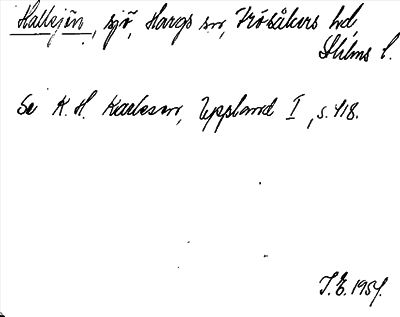 Hallsjön, sjö, Hargs sn, Frösåkers hd,
Sthlms l.
Se K. H. Karlsson, Uppland I, s. 418.
J. E. 1954.